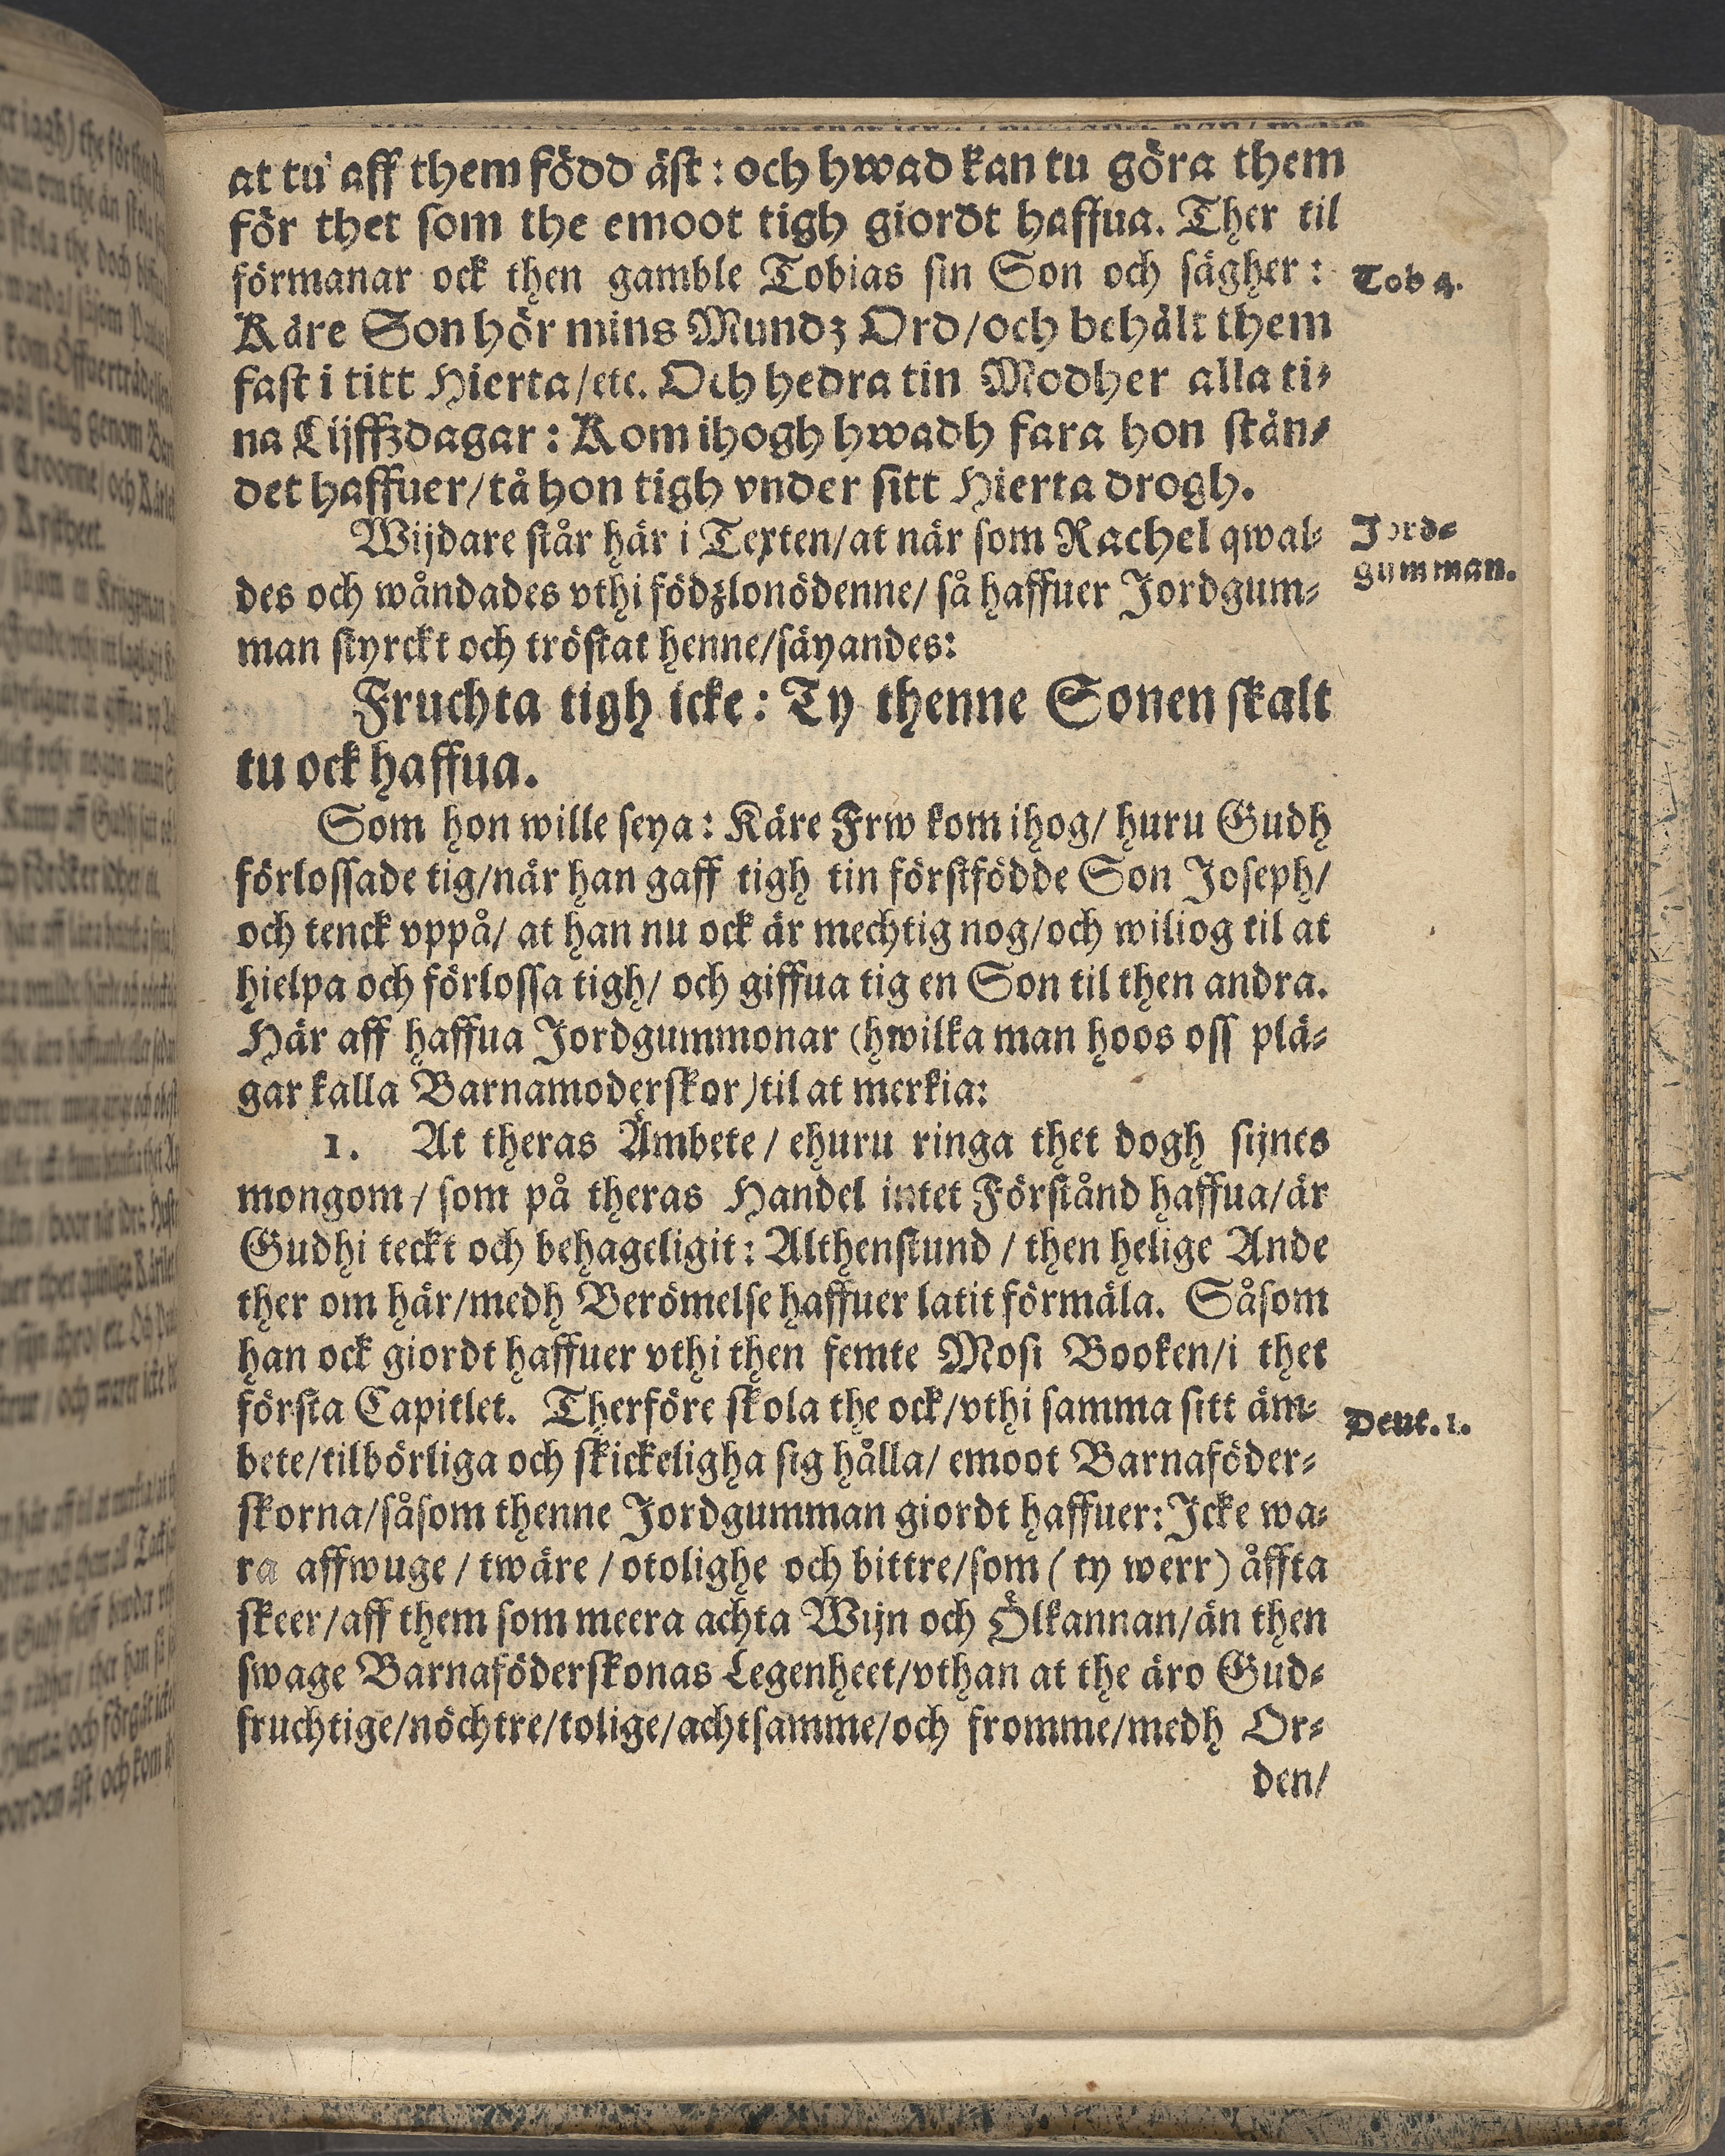 at tu aff them född äst: och hwad kan tu göra them
för thet som the emoot tigh giordt haffua. Ther til
förmanar ock then gamble Tobias sin Son och sägher:
Tob 4.
Käre Son hör mins Mundz Ord/och behålt them
fast i titt Hierta/etc. Och hedra tin Modher alla ti-
na Lijffzdagar: Kom ihogh hwadh fara hon stån-
det haffuer/tå hon tigh vnder sitt Hierta drogh.
Wijdare står här i Texten/at när som Rachel qwal-
Jord-
des och wåndades vthi födzlonödenne/ så haffuer Jordgum-
gumman.
man styrckt och tröstat henne/säyandes:
Fruchta tigh icke: Ty thenne Sonen skalt
tu ock haffua.
Som hon wille seya: Käre Frw kom ihog/ huru Gudh
förlossade tig/når han gaff tigh tin förstfödde Son Joseph/
och tenck vppå/ at han nu ock är mechtig nog/och wiliog til at
hielpa och förlossa tigh/ och giffua tig en Son til then andra.
Här aff haffua Jordgummonar (hwilka man hoos oss plä-
gar kalla Barnamoderskor)til at merkia:
1. At theras Ämbete/ ehuru ringa thet dogh sijnes
mongom/ som på theras Handel intet Förstånd haffua/är
Gudhi teckt och behageligit: Althenstund/ then helige Ande
ther om här/medh Berömelse haffuer latit förmäla. Såsom
han ock giordt haffuer vthi then femte Mosi Booken/i thet
första Capitlet. Therföre skola the ock/vthi samma sitt äm-
Deut. 1.
bete/tilbörliga och skickeligha sig hålla/ emoot Barnaföder-
skorna/såsom thenne Jordgumman giordt haffuer: Icke wa-
ra affwuge/ twäre/ otolighe och bittre/som (ty werr) åffta
skeer/aff them som meera achta Wijn och Ölkannan/än then
swage Barnaföderskonas Legenheet/vthan at the äro Gud-
fruchtige/nöchtre/tolige/achtsamme/och fromme/medh Or-
den/